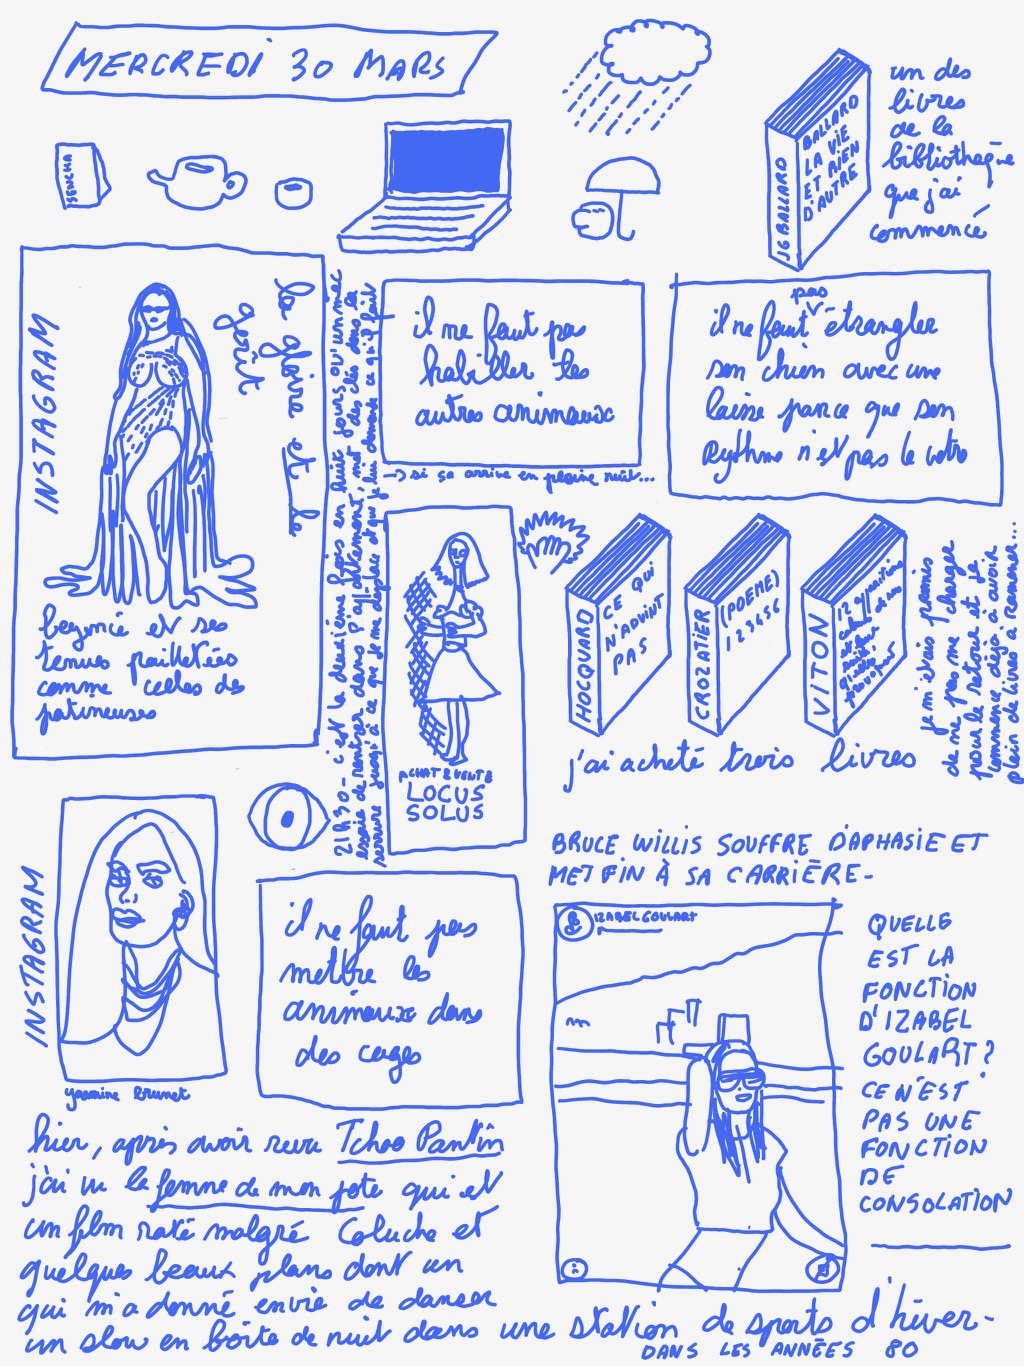 MERCREDI 30 MARS
SENCHA
JG BALLARD
BALLARD
LA VIE
ET RIEN
D'AUTRE
un des
livres
de la
bibliothèque
que j'ai
commencé
INSTAGRAM
la gloire et le
goût
beyoncé et ses
tenues pailletées
comme celles des
patineuses
21H30 - c'est la deuxième fois en huit jours qu'un mec
essaie de rentrer dans l'appartement, met des clés dans la
serrure jusqu'à ce que je me déplace et que je lui demande ce qu'il fait
-> si ça arrive en pleine nuit...
il ne faut pas
habiller les
autres animaux
pas
il ne faut étrangler
son chien avec une
laisse parce que son
rythme n'est pas le votre
ACHAT & VENTE
LOCUS
SOLUS
HOCQUARD
CE QUI
N'ADVINT
PAS
CROZATIER
(POEME)
123456
VITON
j'ai acheté trois livres
je m'étais promis
de ne pas me charger
pour le retour et je
commence déjà à avoir
plein de livres à ramener...
INSTAGRAM
yasmine brunet
il ne faut pas
mettre les
animaux dans
des cages
BRUCE WILLIS SOUFFRE D'APHASIE ET
MET FIN À SA CARRIÈRE-
IZABEL GOULART
QUELLE
EST LA
FONCTION
D'IZABEL
GOULART?
CE N'EST
PAS UNE
FONCTION
DE
CONSOLATION
hier, après avoir revu Tchao Pantin
j'ai vu la femme de mon pote qui est
un film raté malgré Coluche et
quelques beaux plans dont un
qui m'a donné envie de danser
un slow en boîte de nuit dans une station de sports d'hiver-
DANS LES ANNÉES 80